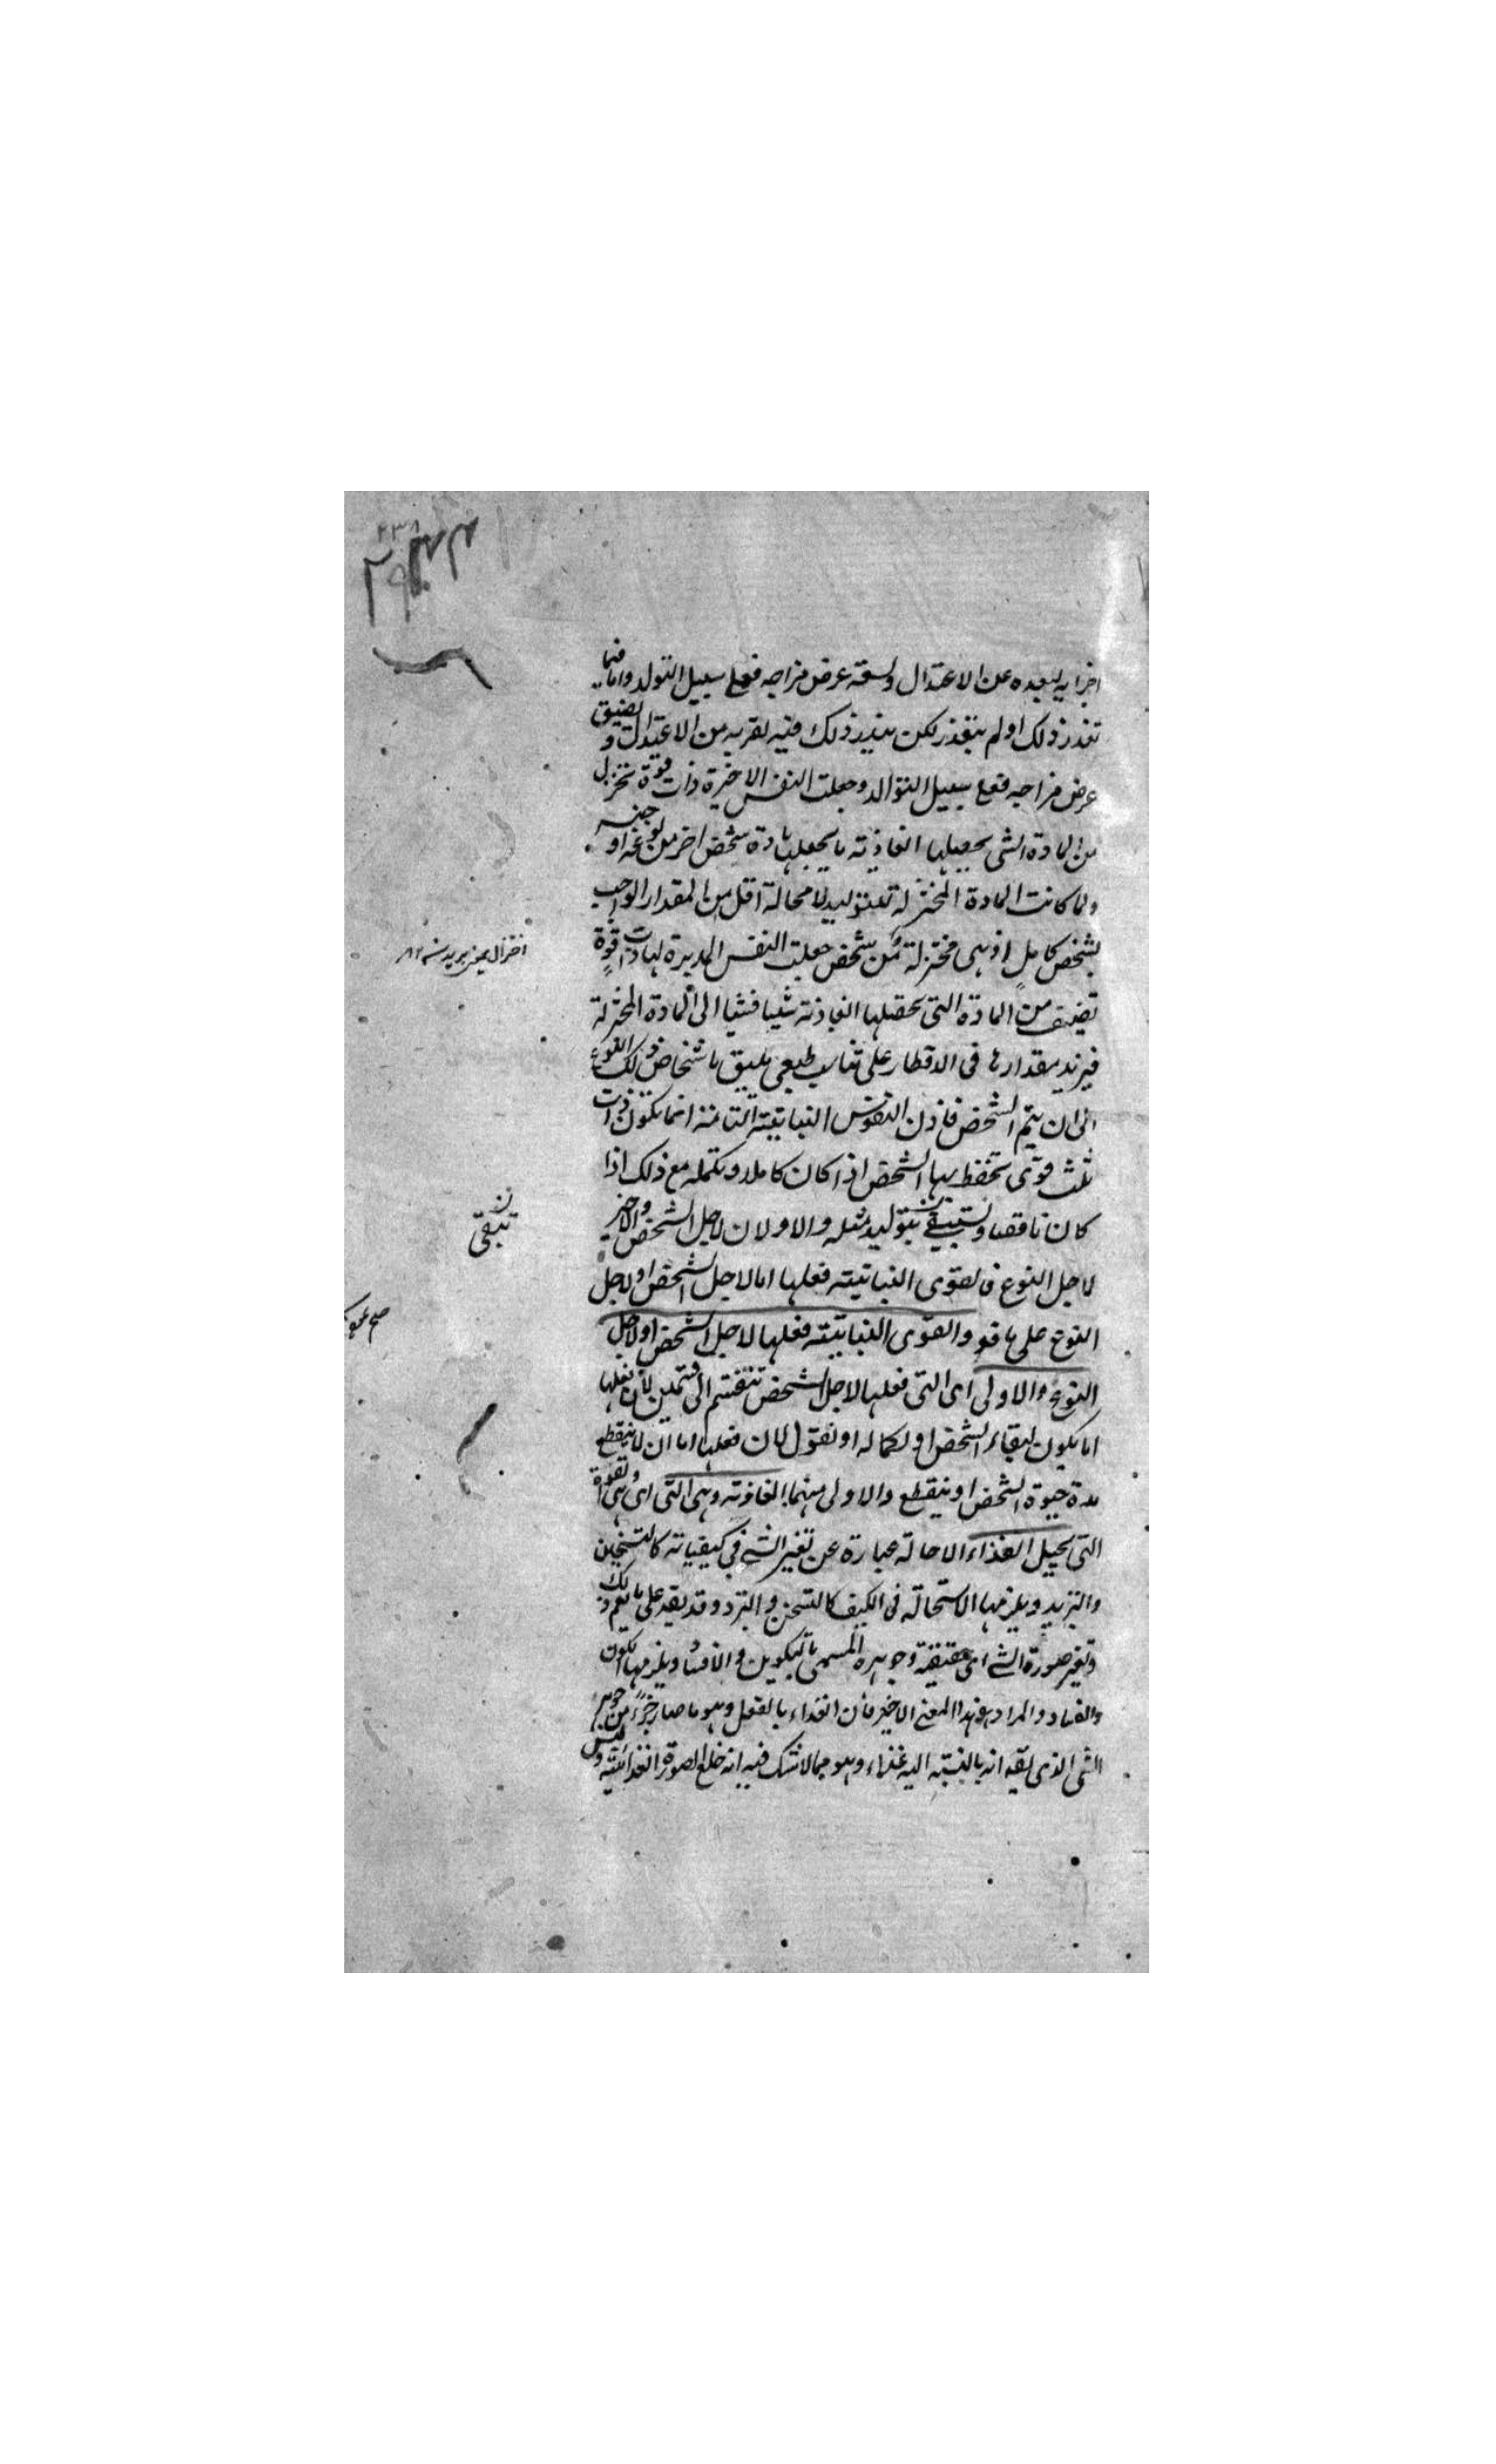 اجزايه لبعده عن الاعتدال ولسعة عرض مزاجه فعلى سبيل التولد واما فيما
تعذر ذلك او لم يتعذر لكن يندر ذلك فيه لقربه من الاعتدال ولضيق
عرض مزاجه فعلى سبيل التوالد وجعلت النفس الاخيرة ذات قوة تختزل
من المادة التى يحصلها الغاذية ما يجعلها مادة شخص اخر من نوعه او جنسه
ولما كانت المادة المختزلة للتوليد لا محالة اقل من المقدار الواجب
لشخص كامل اذ هى مختزلة من شخص جعلت النفس المدبرة لها ذات قوة
تضيف من المادة التى يحصلها الغاذية شيئا فشيئا الى المادة المختزلة
فيزيد مقدارها فى الاقطار على تناسب طبيعى يليق باشخاص ذلك النوع
الى ان يتم الشخص فاذن النفوس النباتية التامة انما تكون ذات
ثلث قوى تحفظ بها الشخص اذا كان كاملا وتكمله مع ذلك اذا
كان ناقصا وتستبقى بتوليد مثله والاولان لاجل الشخص والاخير
لاجل النوع فالقوى النباتية فعلها اما لاجل الشخص او لاجل
النوع على ما قو والقوى النباتية فعلها لاجل الشخص او لاجل
النوع والاولى اى التى فعلها لاجل الشخص تنقسم الى قسمين لان فعلها
اما يكون لبقاء الشخص او لكماله او نقول لان فعلها اما ان لا ينقطع
مدة حيوة الشخص او ينقطع والاولى منهما الغاذية وهى التى اى هى القوة
التى تحيل الغذاء الاحالة عبارة عن تغير الشئ فى كيفياته كالتسخين
والتبريد ويلزمها الاستحالة فى الكيف كالتسخن والتبرد وقد يقع على ما يعم ذلك
وتغير صورة الشئ اى حقيقة وجوهره المسمى بالتكوين والافساد ويلزمها الكون
والفساد والمراد هو هذا المعنى الاخير فان الغذاء بالفعل وهو ما صار جزءا من جوهر
الشئ الذى يقه انه بالنسبة اليه غذاء وهو مما لا شك فيه انه خلع الصورة الغذائية ولبس
اختزال يعنى بريدن ١٢
ن
تبقى